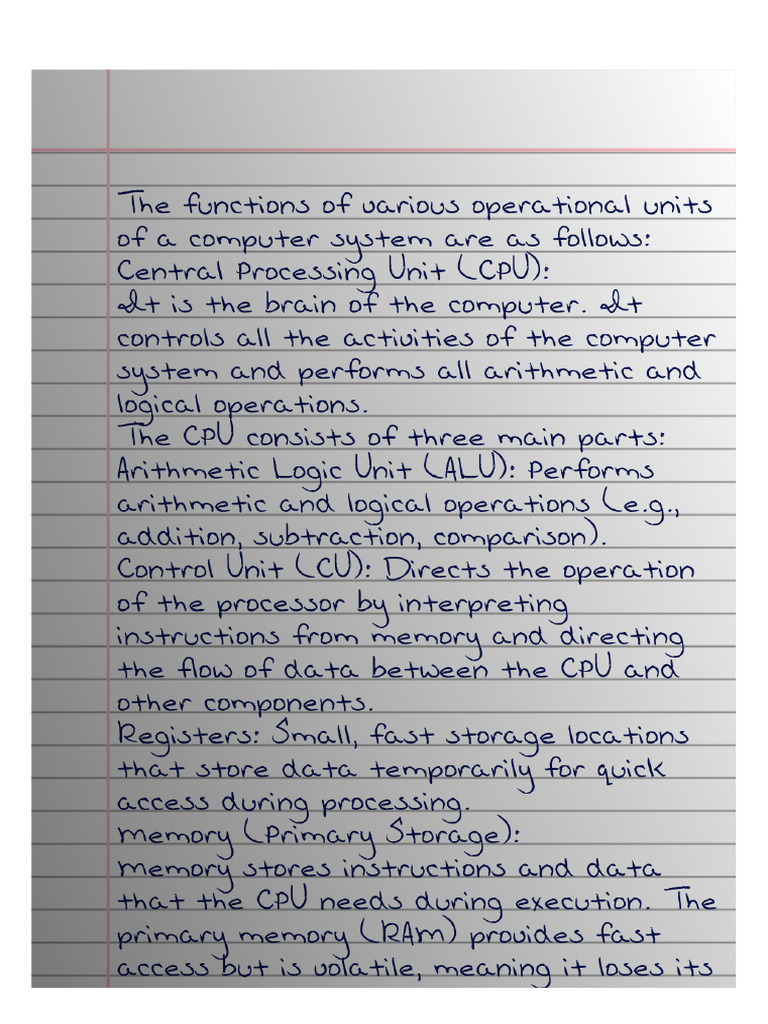 The functions of various operational units
of a computer system are as follows:
Central Processing Unit (CPU):
It is the brain of the computer. It
controls all the activities of the computer
system and performs all arithmetic and
logical operations.
The CPU consists of three main parts:
Arithmetic Logic Unit (ALU): Performs
arithmetic and logical operations (e.g.,
addition, subtraction, comparison).
Control Unit (CU): Directs the operation
of the processor by interpreting
instructions from memory and directing
the flow of data between the CPU and
other components.
Registers: Small, fast storage locations
that store data temporarily for quick
access during processing.
Memory (Primary Storage):
Memory stores instructions and data
that the CPU needs during execution. The
primary memory (RAM) provides fast
access but is volatile, meaning it loses its